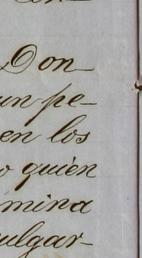 Don
un pe-
en los
o quien
mina
ulgar-